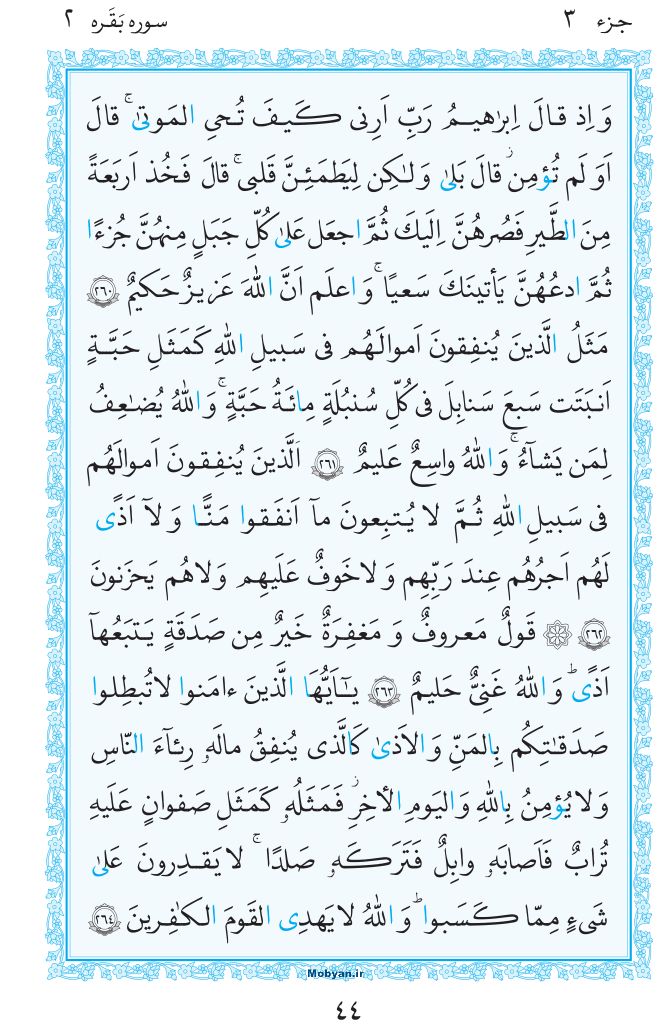 جزء ۳ سوره بَقَره ۲
وَ اِذ قالَ اِبرٰهیمُ رَبِّ اَرِنی کَیفَ تُحیِ المَوتیٰ ۚ قالَ
اَوَ لَم تُؤمِن ۖ قالَ بَلیٰ وَ لٰکِن لِیَطمَئِنَّ قَلبی ۚ قالَ فَخُذ اَربَعَةً
مِنَ الطَّیرِ فَصُرهُنَّ اِلَیكَ ثُمَّ اجعَل عَلیٰ کُلِّ جَبَلٍ مِنهُنَّ جُزءًا
ثُمَّ ادعُهُنَّ یَأتینَكَ سَعیًا ۚ وَ اعلَم اَنَّ اللهَ عَزیزٌ حَکیمٌ ﴿٢٦٠﴾
مَثَلُ الَّذینَ یُنفِقونَ اَموالَهُم فی سَبیلِ اللهِ کَمَثَلِ حَبَّةٍ
اَنبَتَت سَبعَ سَنابِلَ فی کُلِّ سُنبُلَةٍ مِائَةُ حَبَّةٍ ۗ وَ اللهُ یُضٰعِفُ
لِمَن یَشاءُ ۗ وَ اللهُ واسِعٌ عَلیمٌ ﴿٢٦١﴾ اَلَّذینَ یُنفِقونَ اَموالَهُم
فی سَبیلِ اللهِ ثُمَّ لا یُتبِعونَ مآ اَنفَقوا مَنًّا وَ لآ اَذًی
لَهُم اَجرُهُم عِندَ رَبِّهِم وَ لا خَوفٌ عَلَیهِم وَ لا هُم یَحزَنونَ
﴿٢٦٢﴾ ۞ قَولٌ مَعروفٌ وَ مَغفِرَةٌ خَیرٌ مِن صَدَقَةٍ یَتبَعُهآ
اَذًی ۗ وَ اللهُ غَنِیٌّ حَلیمٌ ﴿٢٦٣﴾ یٰٓاَیُّهَا الَّذینَ ءامَنوا لا تُبطِلوا
صَدَقٰتِکُم بِالمَنِّ وَ الاَذیٰ کَالَّذی یُنفِقُ مالَهٗ رِئآءَ النّاسِ
وَ لا یُؤمِنُ بِاللهِ وَ الیَومِ الأخِرِ ۖ فَمَثَلُهٗ کَمَثَلِ صَفوانٍ عَلَیهِ
تُرابٌ فَاَصابَهٗ وابِلٌ فَتَرَکَهٗ صَلدًا ۖ لا یَقدِرونَ عَلیٰ
شَیءٍ مِمّا کَسَبوا ۗ وَ اللهُ لا یَهدِی القَومَ الکٰفِرینَ ﴿٢٦٤﴾
Mobyan.ir
٤٤